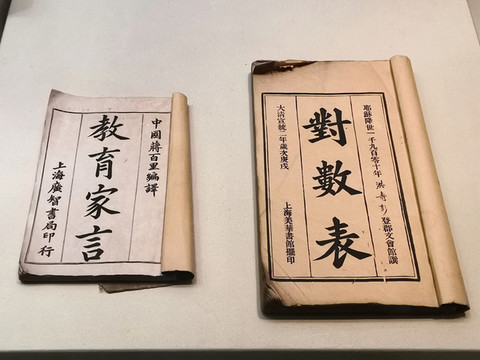 中國蔣百里編譯
教育家言
上海廣智書局印行
耶穌降世一千九百零十年
登郡文會館譔
對數表
大清宣統二年歲次庚戌
上海美華書館擺印